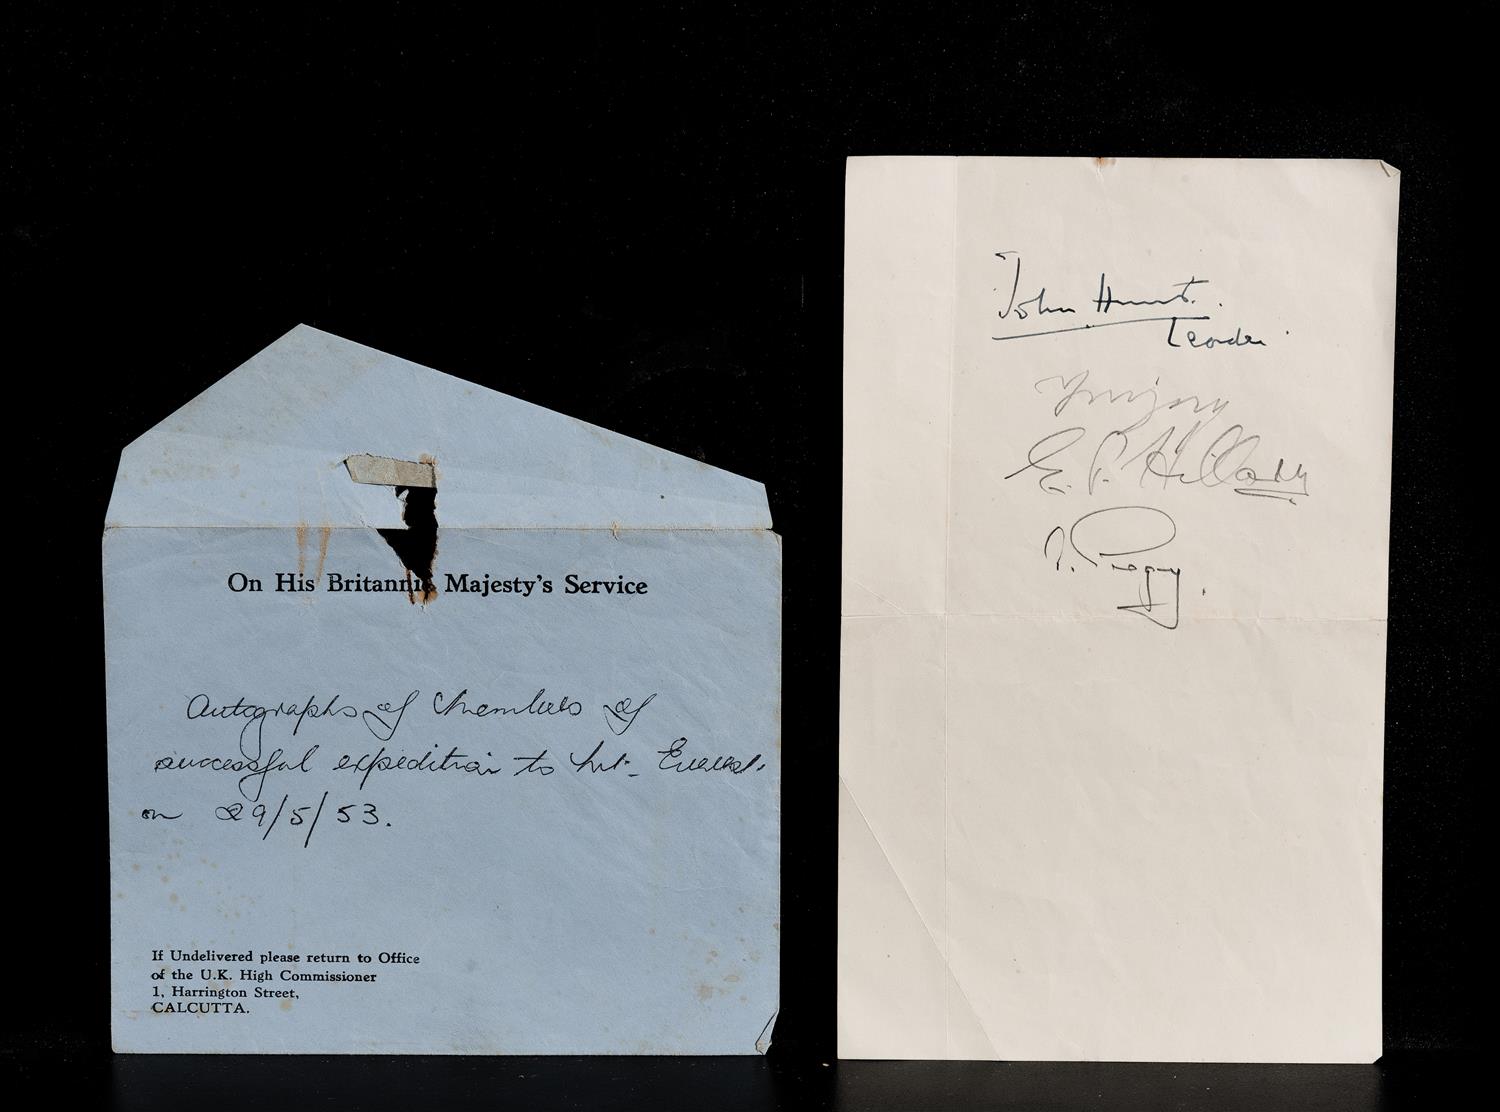 On His Britannic Majesty's Service
Autographs of members of
successful expedition to Mt. Everest.
on 29/5/53.
If Undelivered please return to Office
of the U.K. High Commissioner
1, Harrington Street,
CALCUTTA.
John Hunt.
Leader
E. P. Hillary